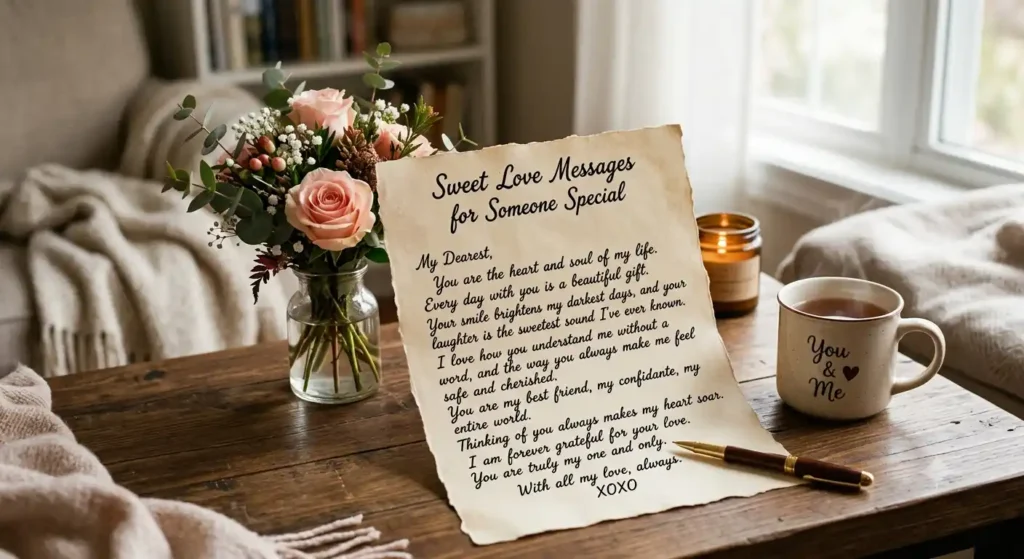 Sweet Love Messages
for Someone Special
My Dearest,
You are the heart and soul of my life.
Every day with you is a beautiful gift.
Your smile brightens my darkest days, and your
laughter is the sweetest sound I've ever known.
I love how you understand me without a
word, and the way you always make me feel
safe and cherished.
You are my best friend, my confidante, my
entire world.
Thinking of you always makes my heart soar.
I am forever grateful for your love.
You are truly my one and only.
With all my love, always.
XOXO
You
&
Me